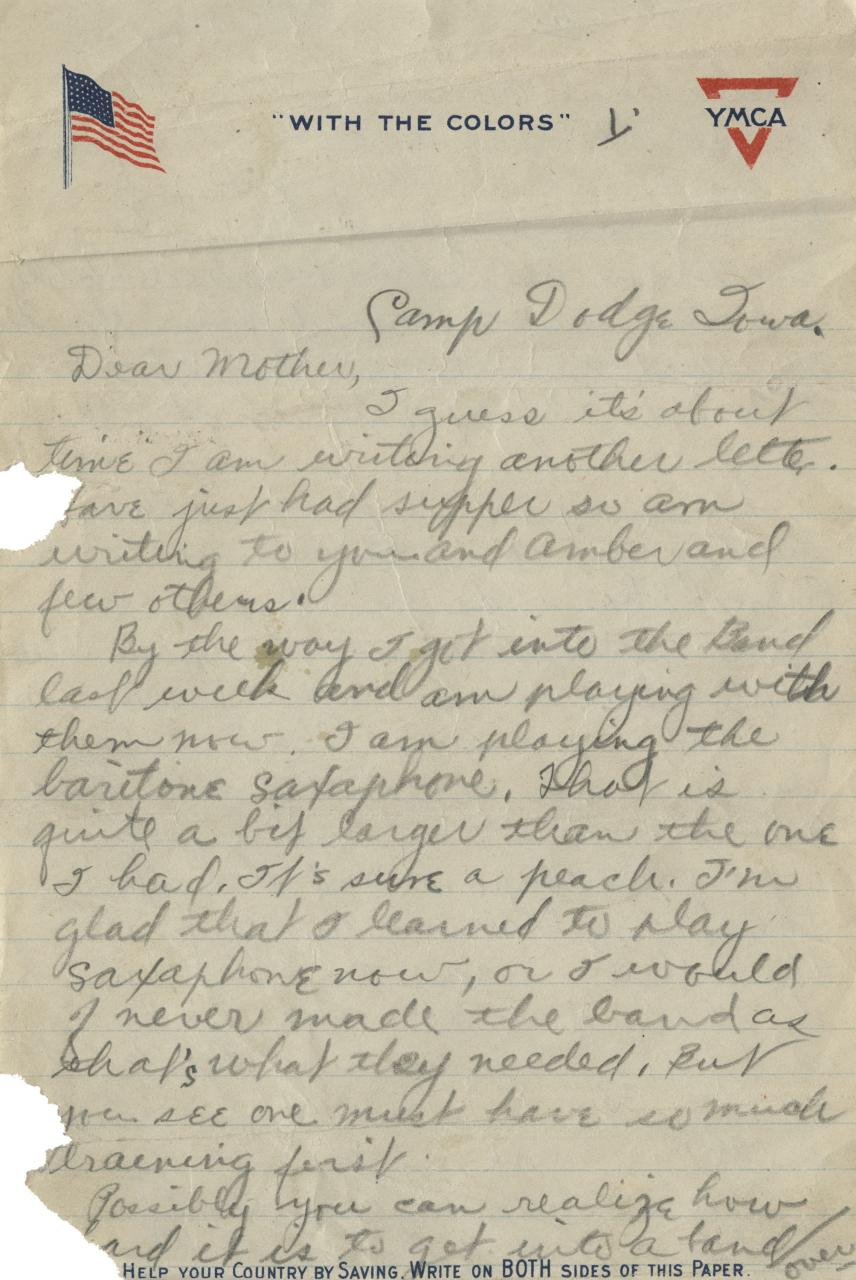 "WITH THE COLORS"
YMCA
Camp Dodge Iowa.
Dear Mother,
I guess it's about
time I am writing another lette.
have just had supper so am
writing to you and Amber and
few others.
By the way I got into the Band
last week and am playing with
them now. I am playing the
baritone saxaphone. That is
quite a bit larger than the one
I had. It's sure a peach. I'm
glad that I learned to play
saxaphone now, or I would
never made the band as
that's what they needed. But
you see one must have so much
training first.
Possibly you can realize how
ard it is to get into a band
over
HELP YOUR COUNTRY BY SAVING. WRITE ON BOTH SIDES OF THIS PAPER.